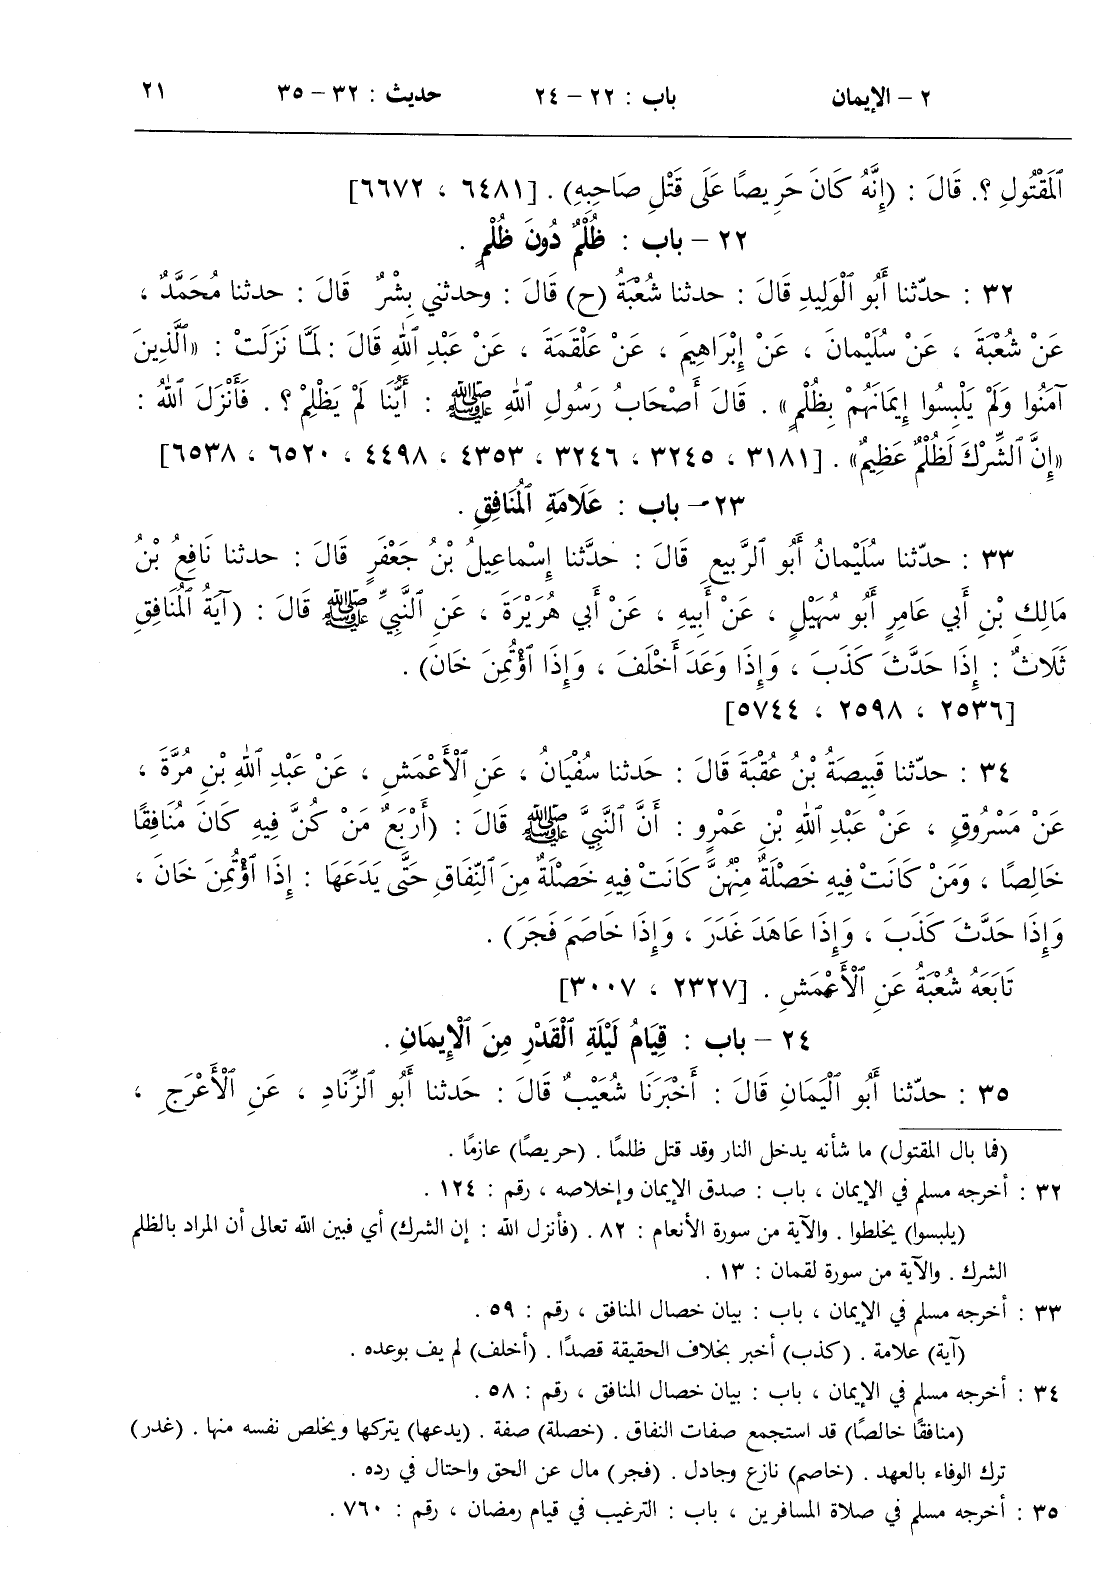 ٢ – الإيمان باب : ٢٢ – ٢٤ حديث : ٣٢ – ٣٥ ٢١
ٱلمَقْتُولِ ؟. قَالَ : (إِنَّهُ كَانَ حَرِيصًا عَلَى قَتْلِ صَاحِبِهِ) . [٦٤٨١ ، ٦٦٧٢]
٢٢ – باب : ظُلْمٌ دُونَ ظُلْمٍ .
٣٢ : حدّثنا أَبُو ٱلْوَلِيدِ قَالَ : حدثنا شُعْبَةُ (ح) قَالَ : وحدثني بِشْرٌ قَالَ : حدثنا مُحَمَّدٌ ،
عَنْ شُعْبَةَ ، عَنْ سُلَيْمانَ ، عَنْ إِبْرَاهِيمَ ، عَنْ عَلْقَمَةَ ، عَنْ عَبْدِ ٱللهِ قَالَ : لَمَّا نَزَلَتْ : «ٱلَّذِينَ
آمَنُوا وَلَمْ يَلْبِسُوا إِيمَانَهُمْ بِظُلْمٍ» . قَالَ أَصْحَابُ رَسُولِ ٱللهِ ﷺ : أَيُّنَا لَمْ يَظْلِمْ ؟ . فَأَنْزَلَ ٱللهُ :
«إِنَّ ٱلشِّرْكَ لَظُلْمٌ عَظِيمٌ» . [٣١٨١ ، ٣٢٤٥ ، ٣٢٤٦ ، ٤٣٥٣ ، ٤٤٩٨ ، ٦٥٢٠ ، ٦٥٣٨]
٢٣ – باب : عَلَامَةِ ٱلْمُنَافِقِ .
٣٣ : حدّثنا سُلَيْمانُ أَبُو ٱلرَّبِيعِ قَالَ : حدَّثنا إِسْماعِيلُ بْنُ جَعْفَرٍ قَالَ : حدثنا نَافِعُ بْنُ
مَالِكِ بْنِ أَبِي عَامِرٍ أَبُو سُهَيْلٍ ، عَنْ أَبِيهِ ، عَنْ أَبِي هُرَيْرَةَ ، عَنِ ٱلنَّبِيِّ ﷺ قَالَ : (آيَةُ ٱلْمُنَافِقِ
ثَلَاثٌ : إِذَا حَدَّثَ كَذَبَ ، وَإِذَا وَعَدَ أَخْلَفَ ، وَإِذَا ٱؤْتُمِنَ خَانَ) .
[٢٥٣٦ ، ٢٥٩٨ ، ٥٧٤٤]
٣٤ : حدّثنا قَبِيصَةُ بْنُ عُقْبَةَ قَالَ : حَدثنا سُفْيَانُ ، عَنِ ٱلْأَعْمَشِ ، عَنْ عَبْدِ ٱللهِ بْنِ مُرَّةَ ،
عَنْ مَسْرُوقٍ ، عَنْ عَبْدِ ٱللهِ بْنِ عَمْرٍو : أَنَّ ٱلنَّبِيَّ ﷺ قَالَ : (أَرْبَعٌ مَنْ كُنَّ فِيهِ كَانَ مُنَافِقًا
خَالِصًا ، وَمَنْ كَانَتْ فِيهِ خَصْلَةٌ مِنْهُنَّ كَانَتْ فِيهِ خَصْلَةٌ مِنَ ٱلنِّفَاقِ حَتَّى يَدَعَهَا : إِذَا ٱؤْتُمِنَ خَانَ ،
وَإِذَا حَدَّثَ كَذَبَ ، وَإِذَا عَاهَدَ غَدَرَ ، وَإِذَا خَاصَمَ فَجَرَ) .
تَابَعَهُ شُعْبَةُ عَنِ ٱلْأَعْمَشِ . [٢٣٢٧ ، ٣٠٠٧]
٢٤ – باب : قِيَامُ لَيْلَةِ ٱلْقَدْرِ مِنَ ٱلْإِيمَانِ .
٣٥ : حدّثنا أَبُو ٱلْيَمَانِ قَالَ : أَخْبَرَنَا شُعَيْبٌ قَالَ : حَدثنا أَبُو ٱلزِّنَادِ ، عَنِ ٱلْأَعْرَجِ ،
(فما بال المقتول) ما شأنه يدخل النار وقد قتل ظلمًا . (حريصًا) عازمًا .
٣٢ : أخرجه مسلم في الإيمان ، باب : صدق الإيمان وإخلاصه ، رقم : ١٢٤ .
(يلبسوا) يخلطوا . والآية من سورة الأنعام : ٨٢ . (فأنزل الله : إن الشرك) أي فبين الله تعالى أن المراد بالظلم
الشرك . والآية من سورة لقمان : ١٣ .
٣٣ : أخرجه مسلم في الإيمان ، باب : بيان خصال المنافق ، رقم : ٥٩ .
(آية) علامة . (كذب) أخبر بخلاف الحقيقة قصدًا . (أخلف) لم يف بوعده .
٣٤ : أخرجه مسلم في الإيمان ، باب : بيان خصال المنافق ، رقم : ٥٨ .
(منافقًا خالصًا) قد استجمع صفات النفاق . (خصلة) صفة . (يدعها) يتركها ويخلص نفسه منها . (غدر)
ترك الوفاء بالعهد . (خاصم) نازع وجادل . (فجر) مال عن الحق واحتال في رده .
٣٥ : أخرجه مسلم في صلاة المسافرين ، باب : الترغيب في قيام رمضان ، رقم : ٧٦٠ .